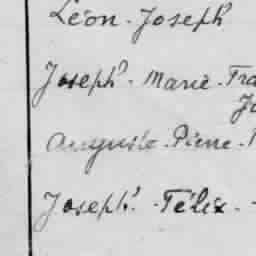 Léon. Joseph
Joseph. Marie. Fra
Auguste. Pierre.
Joseph. Félix.